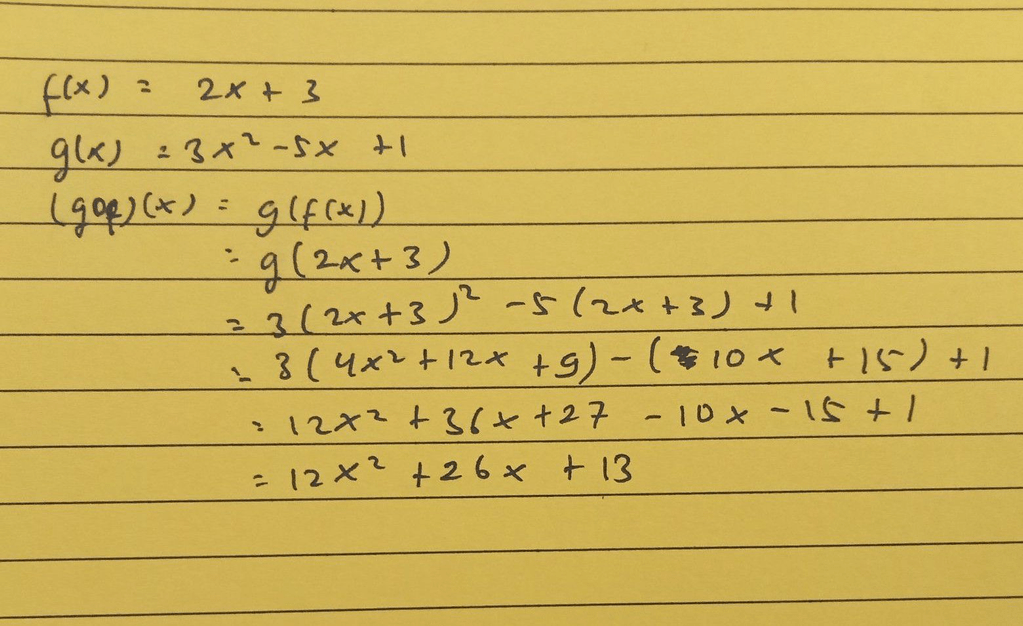 f(x) = 2x + 3
g(x) = 3x² -5x +1
(gof)(x) = g(f(x))
= g(2x+3)
= 3(2x+3)² -5(2x+3) +1
= 3(4x²+12x +9) - (10x +15) +1
= 12x² +36x +27 -10x -15 +1
= 12x² +26x +13